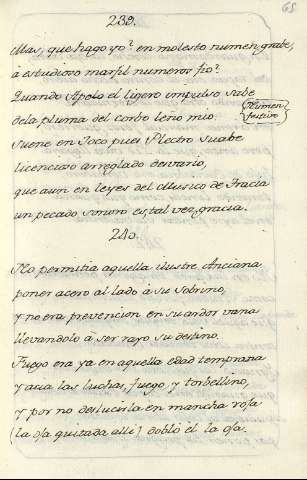 68
239.
Mas, que hago yo? en molesto numen grabe,
à estudioso marfil numeros fio?
Quando Apolo el ligero impulso sabe
dela pluma del corbo leño mio.
Numen
festivo
Suene en Soco pues Plectro suabe
licencioso arreglado desvario,
que aun en leyes del Musico de Tracia
un pecado sonoro es, tal vez, gracia.
240.
No permitia aquella ilustre Anciana
poner acero al lado à su Sobrino,
y no era prevencion en su ardor vana
llevandolo à ser rayo su destino.
Fuego era ya en aquella edad temprana
y acia las luchas, fuego y torbellino,
y por no deslucirla en mancha roja
(la oja quitada alli) doblò èl la oja.